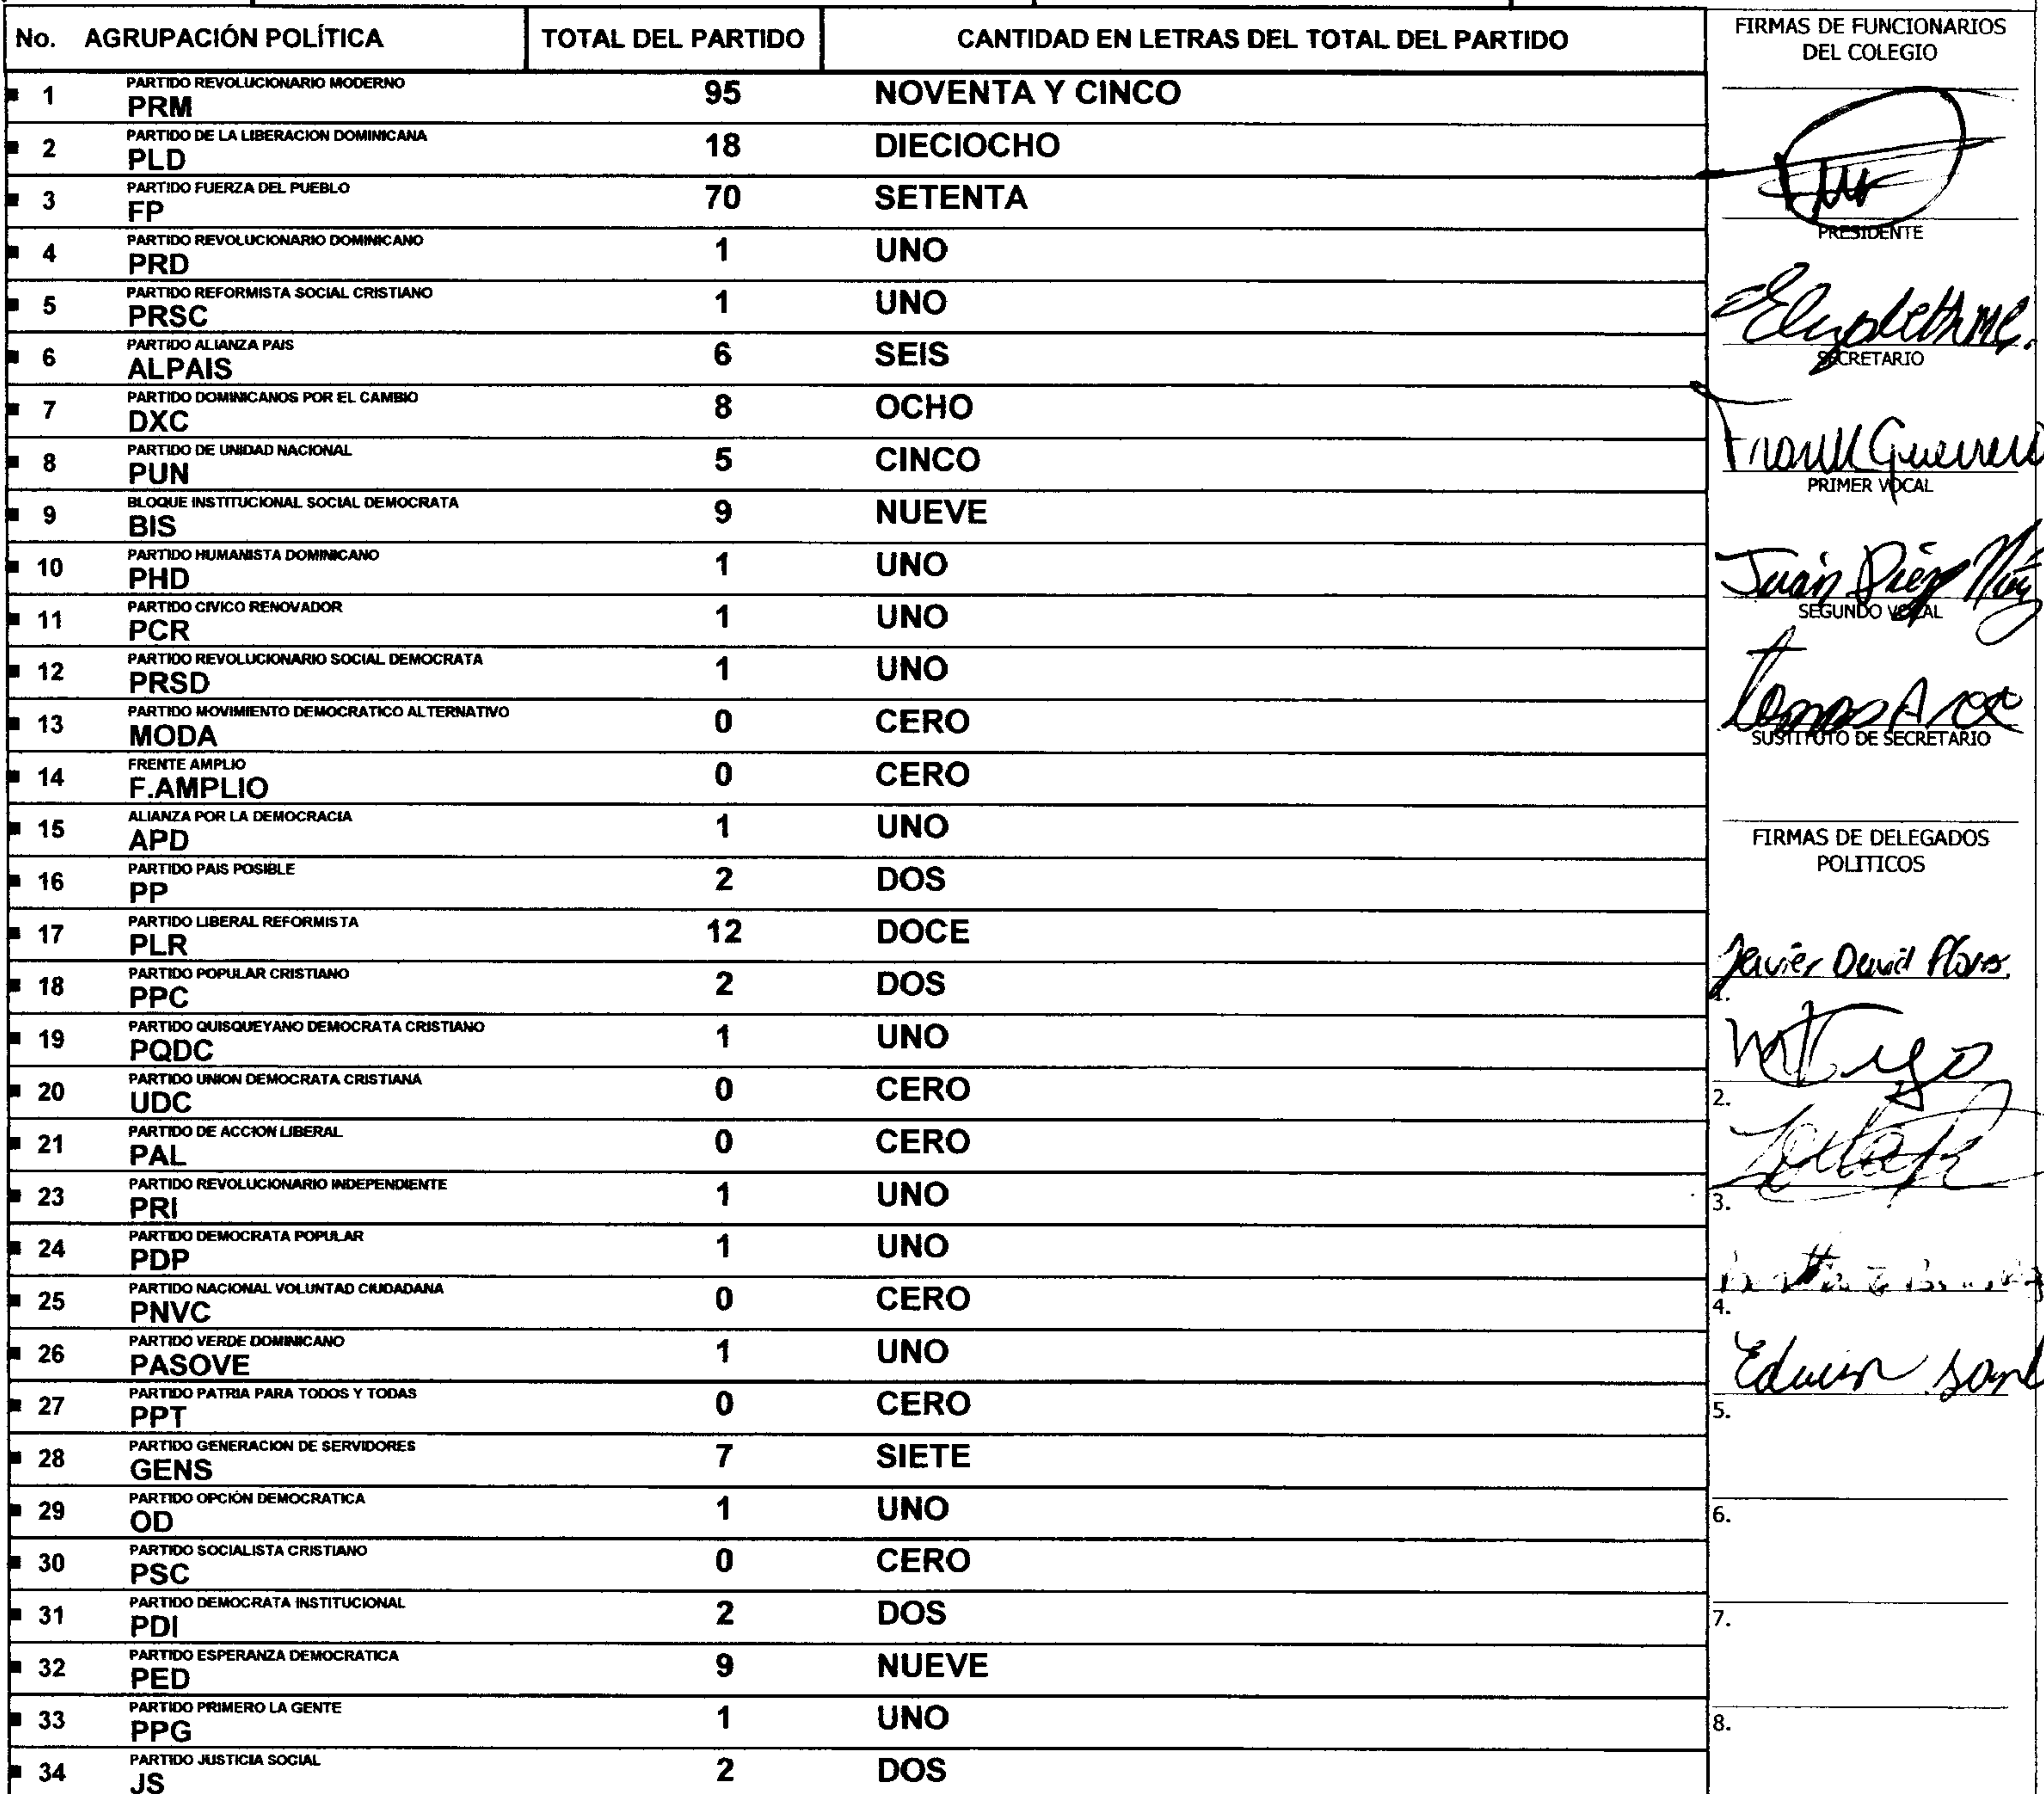 No. AGRUPACIÓN POLÍTICA TOTAL DEL PARTIDO CANTIDAD EN LETRAS DEL TOTAL DEL PARTIDO
1 PARTIDO REVOLUCIONARIO MODERNO
PRM 95 NOVENTA Y CINCO
2 PARTIDO DE LA LIBERACION DOMINICANA
PLD 18 DIECIOCHO
3 PARTIDO FUERZA DEL PUEBLO
FP 70 SETENTA
4 PARTIDO REVOLUCIONARIO DOMINICANO
PRD 1 UNO
5 PARTIDO REFORMISTA SOCIAL CRISTIANO
PRSC 1 UNO
6 PARTIDO ALIANZA PAIS
ALPAIS 6 SEIS
7 PARTIDO DOMINICANOS POR EL CAMBIO
DXC 8 OCHO
8 PARTIDO DE UNIDAD NACIONAL
PUN 5 CINCO
9 BLOQUE INSTITUCIONAL SOCIAL DEMOCRATA
BIS 9 NUEVE
10 PARTIDO HUMANISTA DOMINICANO
PHD 1 UNO
11 PARTIDO CIVICO RENOVADOR
PCR 1 UNO
12 PARTIDO REVOLUCIONARIO SOCIAL DEMOCRATA
PRSD 1 UNO
13 PARTIDO MOVIMIENTO DEMOCRATICO ALTERNATIVO
MODA 0 CERO
14 FRENTE AMPLIO
F.AMPLIO 0 CERO
15 ALIANZA POR LA DEMOCRACIA
APD 1 UNO
16 PARTIDO PAIS POSIBLE
PP 2 DOS
17 PARTIDO LIBERAL REFORMISTA
PLR 12 DOCE
18 PARTIDO POPULAR CRISTIANO
PPC 2 DOS
19 PARTIDO QUISQUEYANO DEMOCRATA CRISTIANO
PQDC 1 UNO
20 PARTIDO UNION DEMOCRATA CRISTIANA
UDC 0 CERO
21 PARTIDO DE ACCION LIBERAL
PAL 0 CERO
23 PARTIDO REVOLUCIONARIO INDEPENDIENTE
PRI 1 UNO
24 PARTIDO DEMOCRATA POPULAR
PDP 1 UNO
25 PARTIDO NACIONAL VOLUNTAD CIUDADANA
PNVC 0 CERO
26 PARTIDO VERDE DOMINICANO
PASOVE 1 UNO
27 PARTIDO PATRIA PARA TODOS Y TODAS
PPT 0 CERO
28 PARTIDO GENERACION DE SERVIDORES
GENS 7 SIETE
29 PARTIDO OPCIÓN DEMOCRATICA
OD 1 UNO
30 PARTIDO SOCIALISTA CRISTIANO
PSC 0 CERO
31 PARTIDO DEMOCRATA INSTITUCIONAL
PDI 2 DOS
32 PARTIDO ESPERANZA DEMOCRATICA
PED 9 NUEVE
33 PARTIDO PRIMERO LA GENTE
PPG 1 UNO
34 PARTIDO JUSTICIA SOCIAL
JS 2 DOS
FIRMAS DE FUNCIONARIOS
DEL COLEGIO
PRESIDENTE
SECRETARIO
Guerrero
PRIMER VOCAL
Juan
SEGUNDO VOCAL
SUSTITUTO DE SECRETARIO
FIRMAS DE DELEGADOS
POLITICOS
Javier David
1.
2.
3.
4.
Edwin
5.
6.
7.
8.